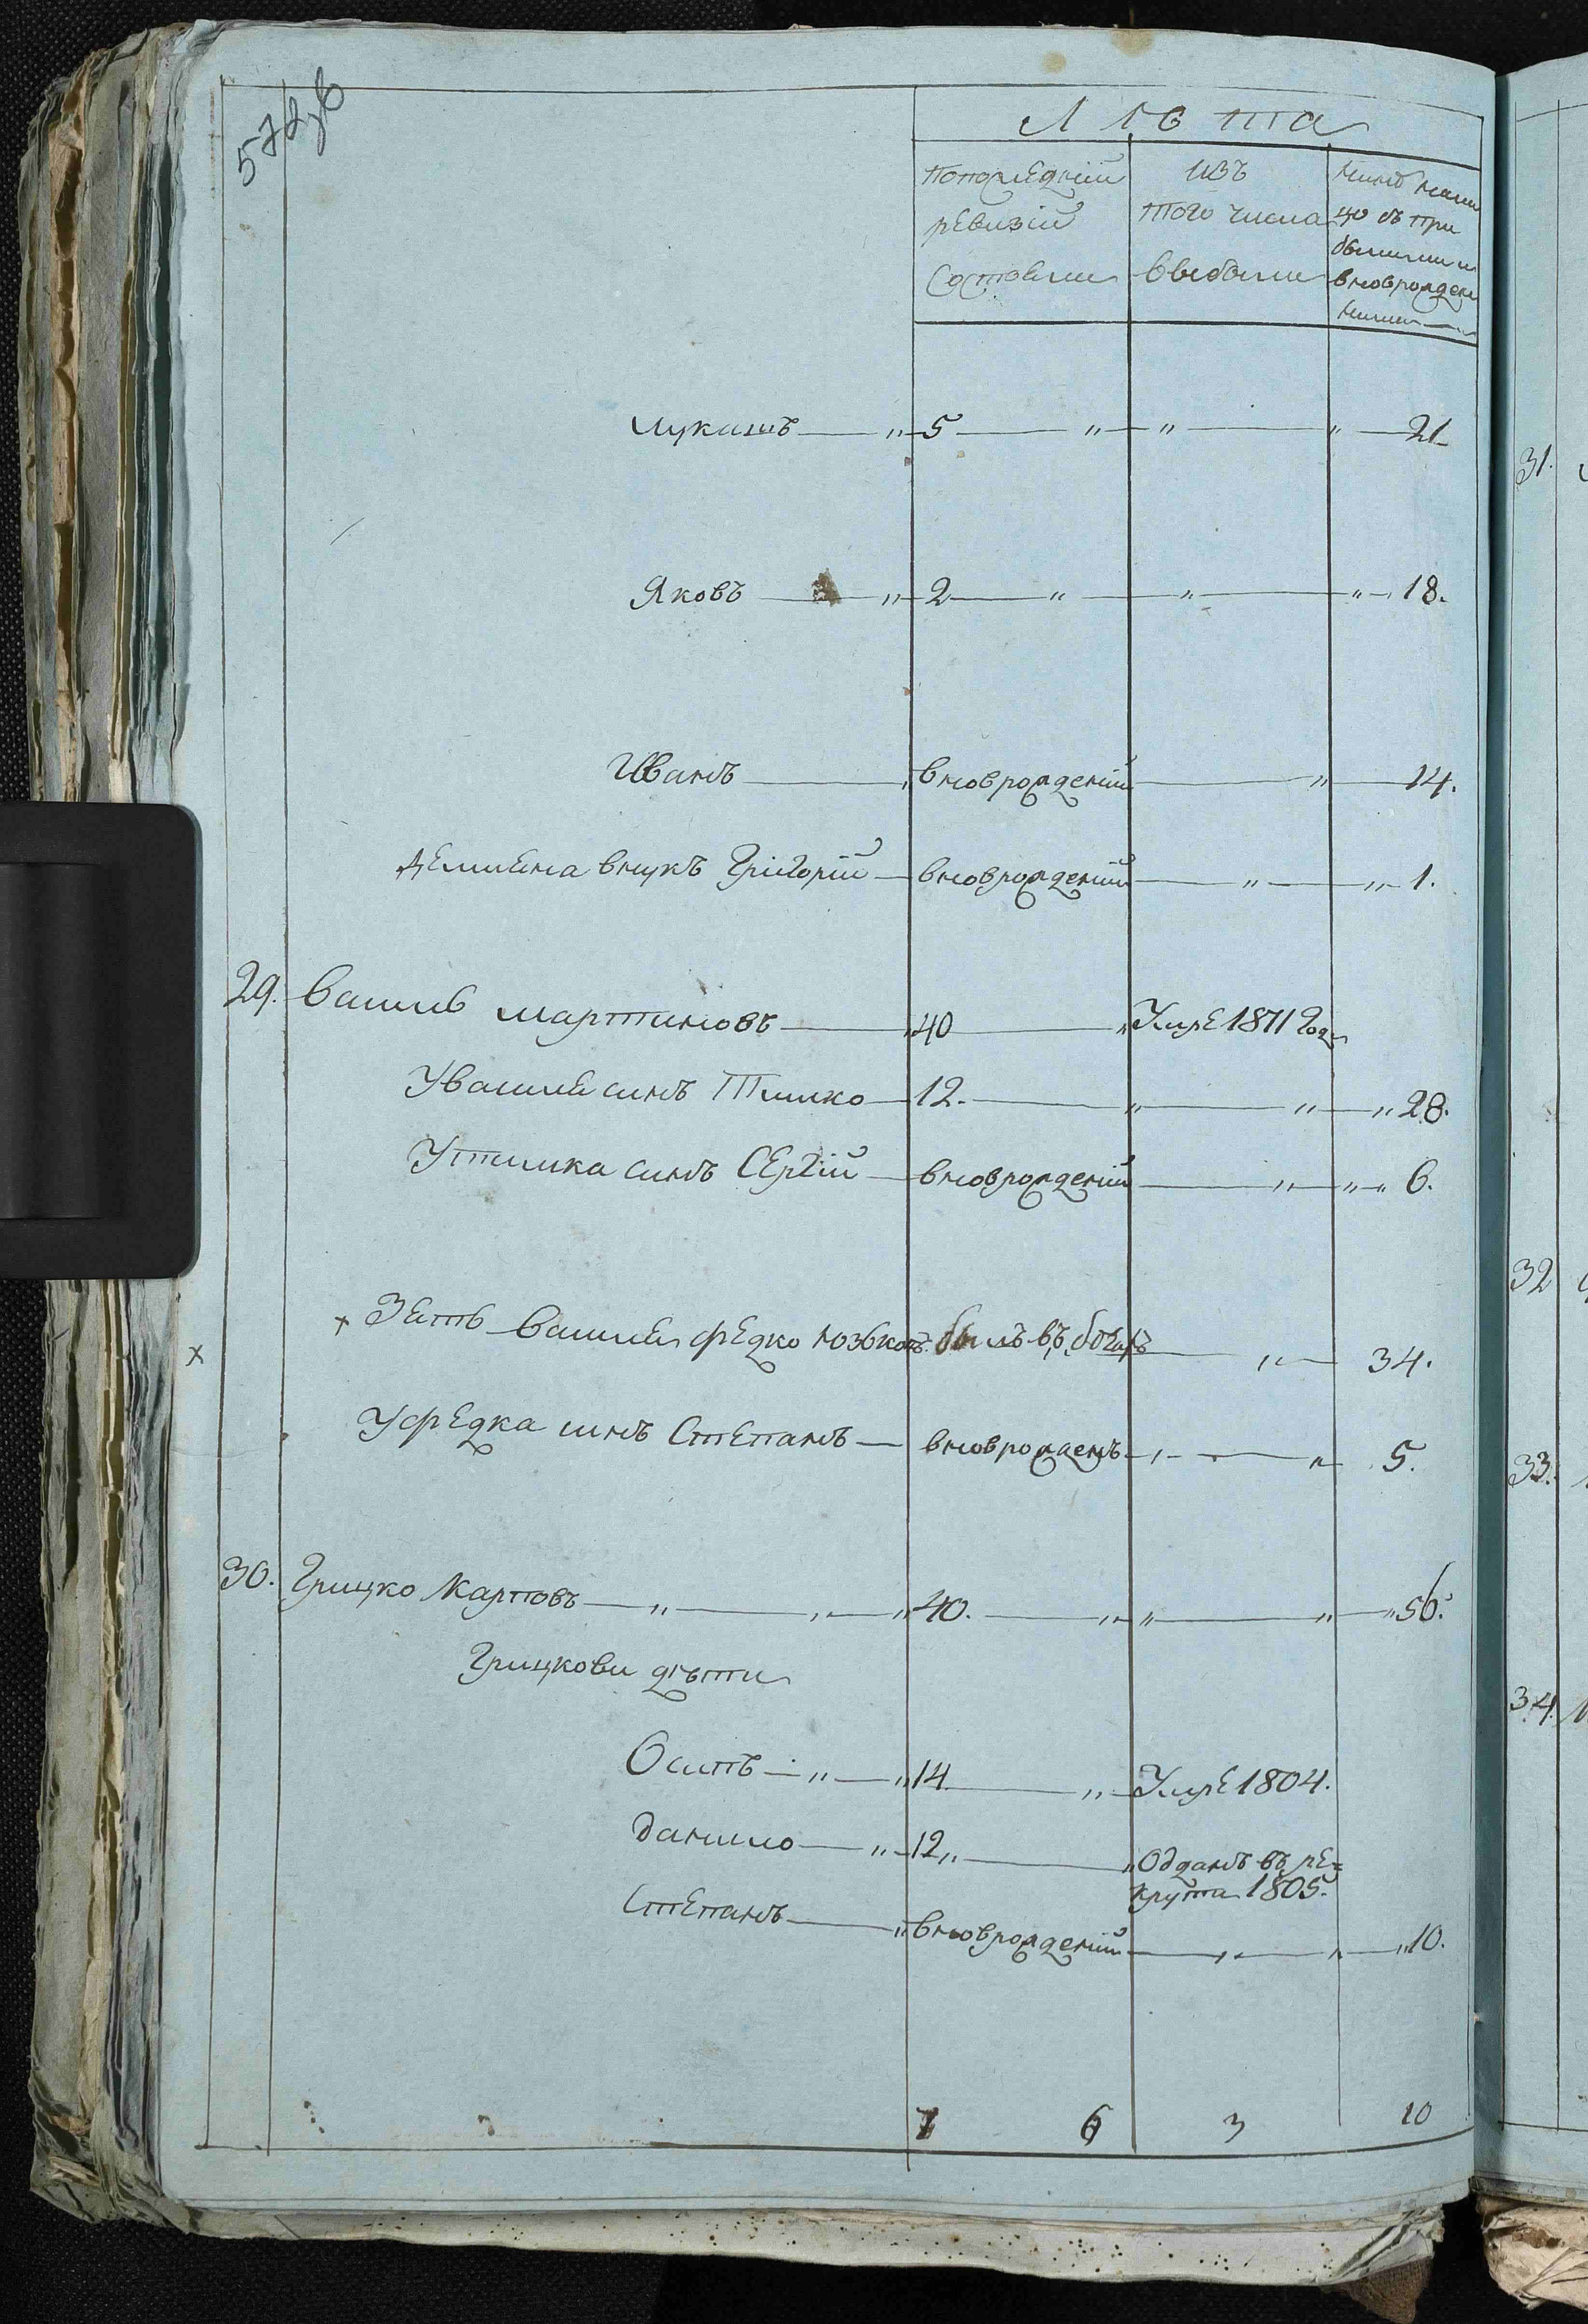 Лѣта
попоследній
ревизіи
состояли
изъ
того числа
выбыли
ныне нали
цо съ при
былыми и
вноврожден
ними
Лукашъ 5 21
Яковъ 2 18.
Иванъ вноврожденій 14.
Демиена внукъ Григорій вноврожденій 1.
29. Василь Мартиновъ 40 Умре 1811 года
У Василя синъ Тимко 12. 28.
У Тимка синъ Сергій вноврожденій 6.
х Зять Василя Федко Юзков былъ въ бегахъ 34.
х
У Федка синъ Степанъ вноврожденъ 5.
30. Грицко Карповъ 40. 56.
Грицкови дѣти
Осипъ 14 Умре 1804.
Данило 12 Одданъ въ ре=
крута 1805.
Степанъ вноврожденій 10.
6 3 10
31.
32
33.
34.